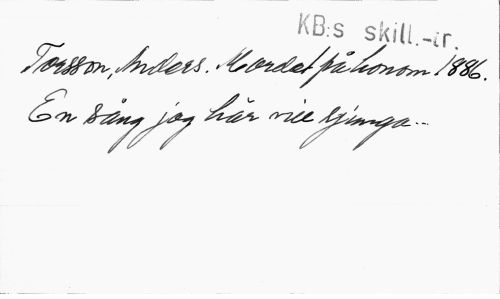 KB:s skill.-tr.
Torsson, Anders. Mordet på honom 1886.
En sång jag här vill sjunga...